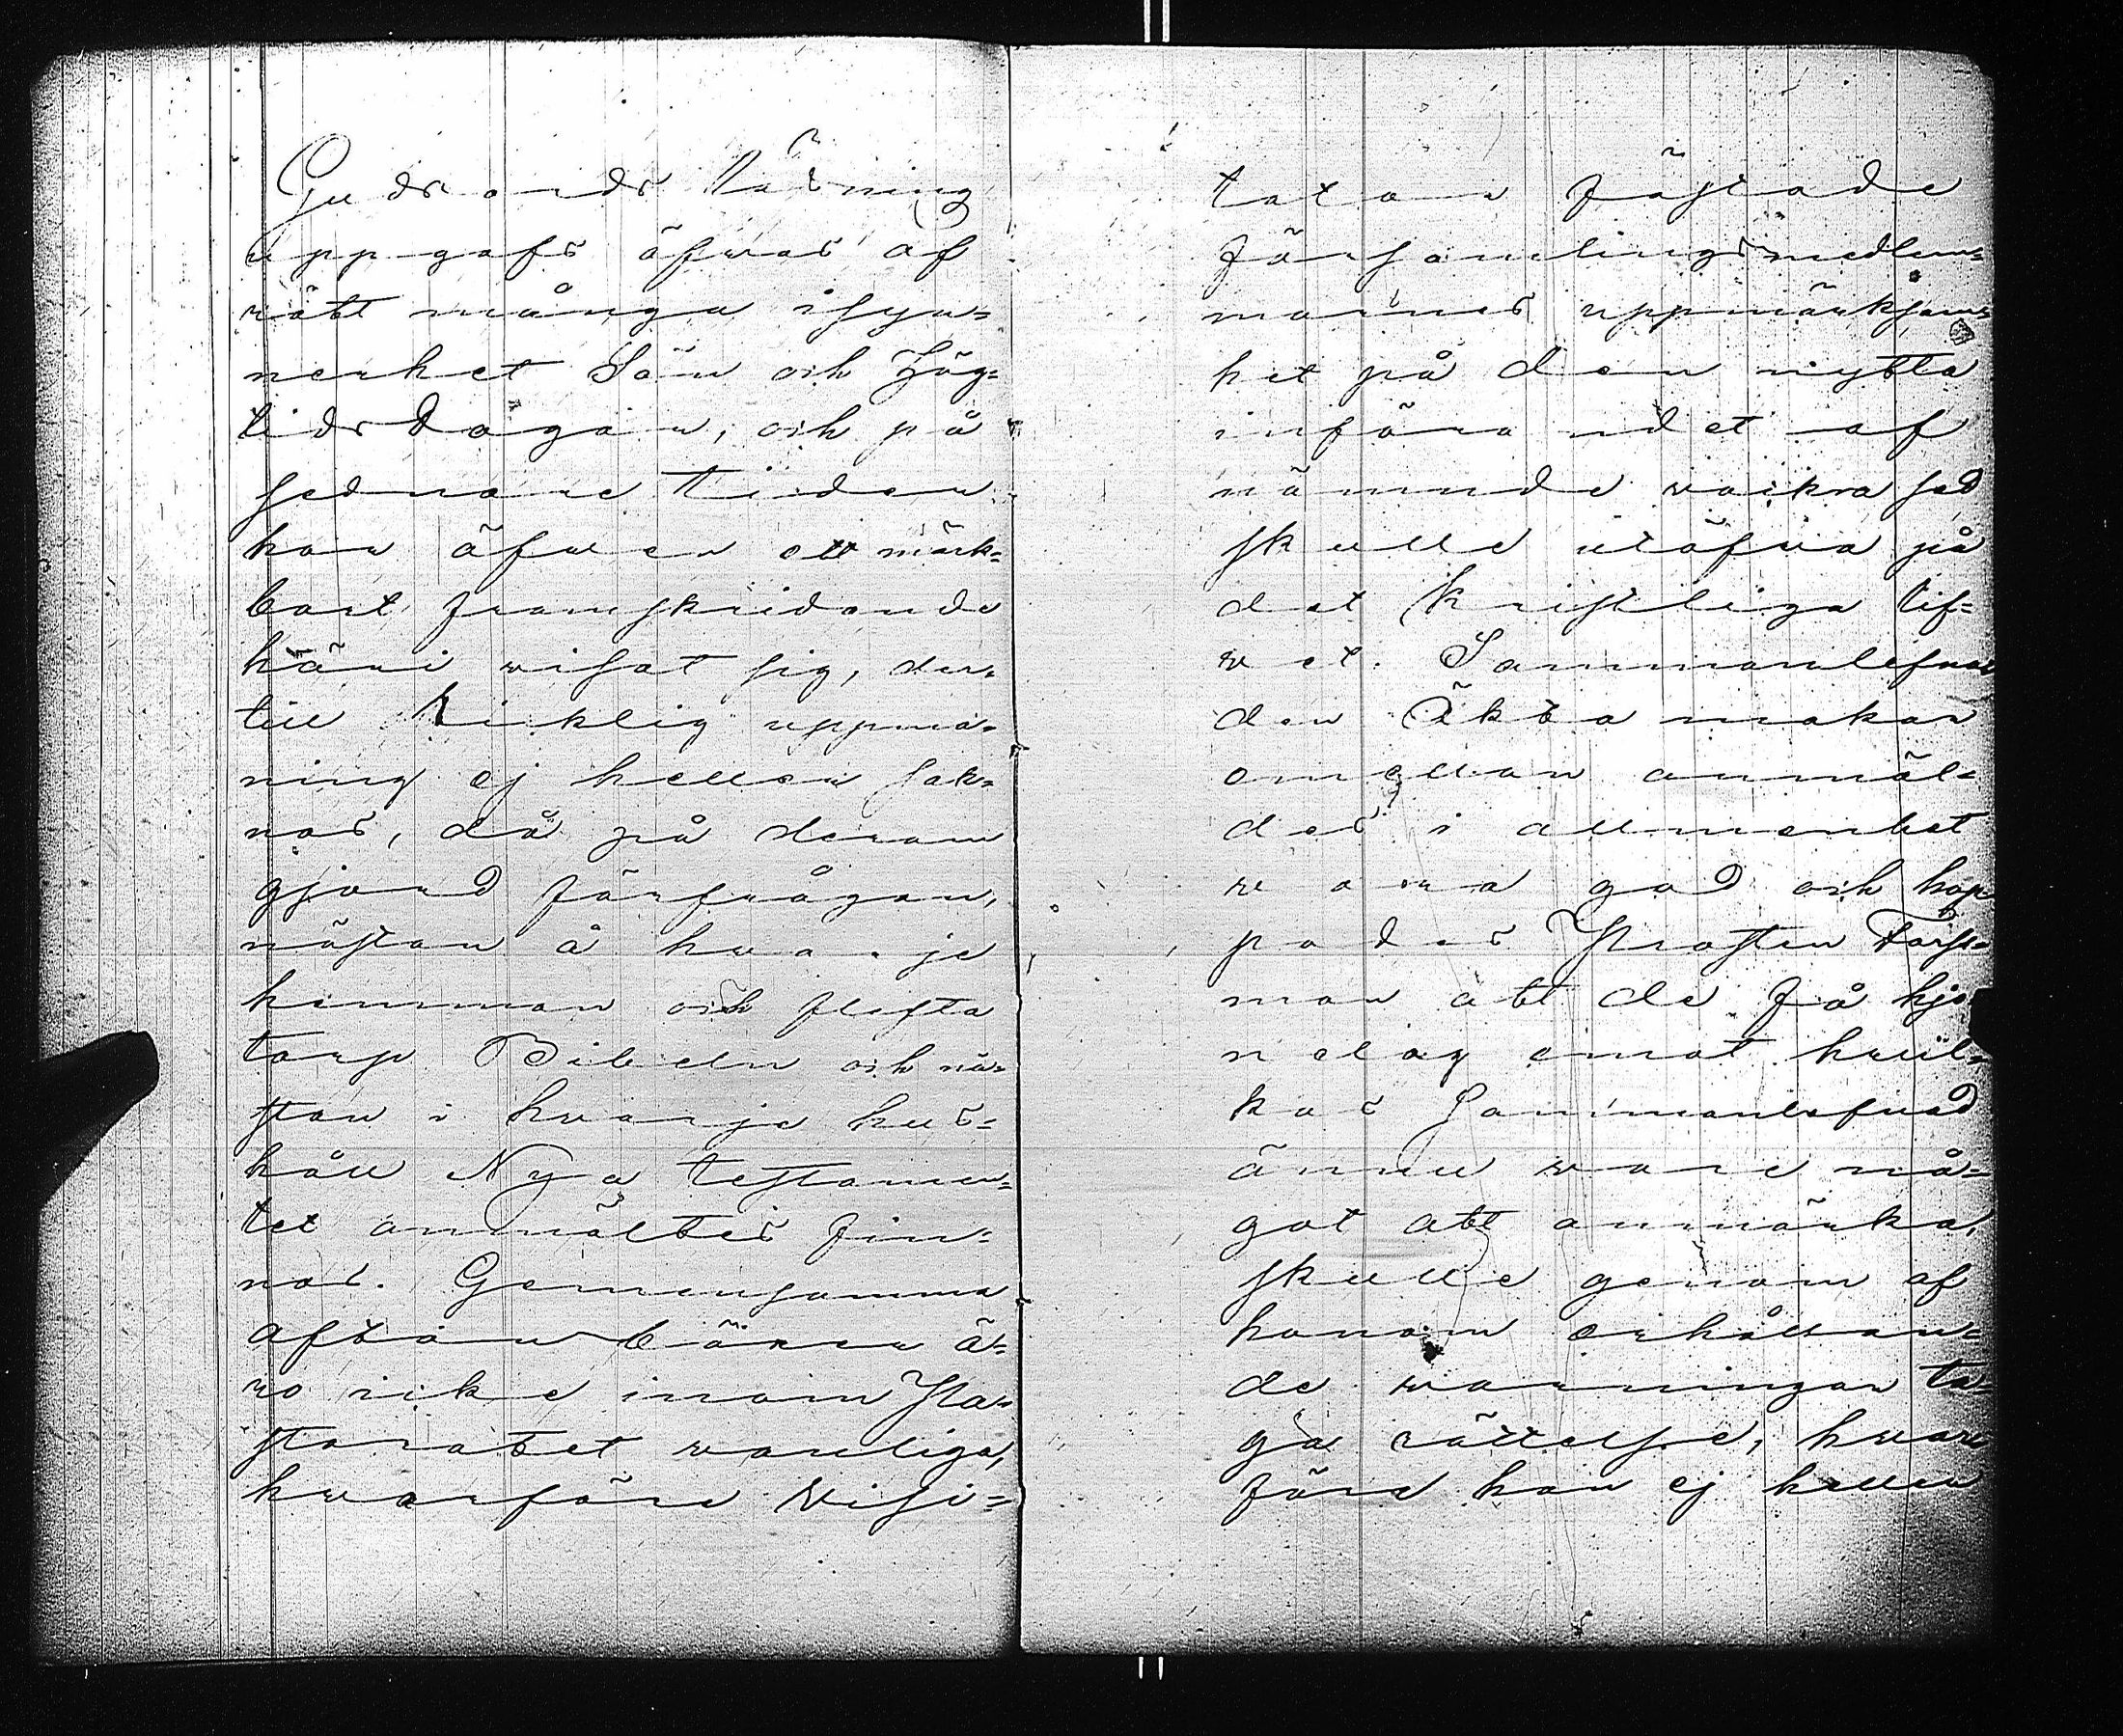 Guds ords läsning
uppgafs öfvas af
rätt många isyn=
nerhet Sön och Hög=
tidsdagar, och på
sednare tiden
har äfven ett märk=
bart framskridande
häri visat sig, der=
till tillräcklig uppma=
ning ej heller sak=
nas, då på derom
gjord förfrågan,
nästan å hvarje
hemman och flesta
torp Bibeln och nä=
stan i hvarje hus=
håll Nya testamen=
tet anmältes fin=
nas. Gemensamma
aftonböner ä=
ro icke inom Pa=
storatet vanliga,
hvarföre Visi=
tator fästade
församlingsmedlem=
marnes uppmärksam=
het på den nytta
införandet af
nämnde vackra sed
skulle utöfva på
det kristliga lif=
vet. Sammanlefna=
den Äkta makar
emellan anmäl=
des i allmenhet
vara god och hop=
pades Prosten Forss=
man att de få hjo=
nelag emot hvil=
kas sammanlefnad
ännu vore nå=
got att anmärka,
skulle genom af
honom erhållan=
de varningar ta=
ga rättelse, hvar=
före han ej heller